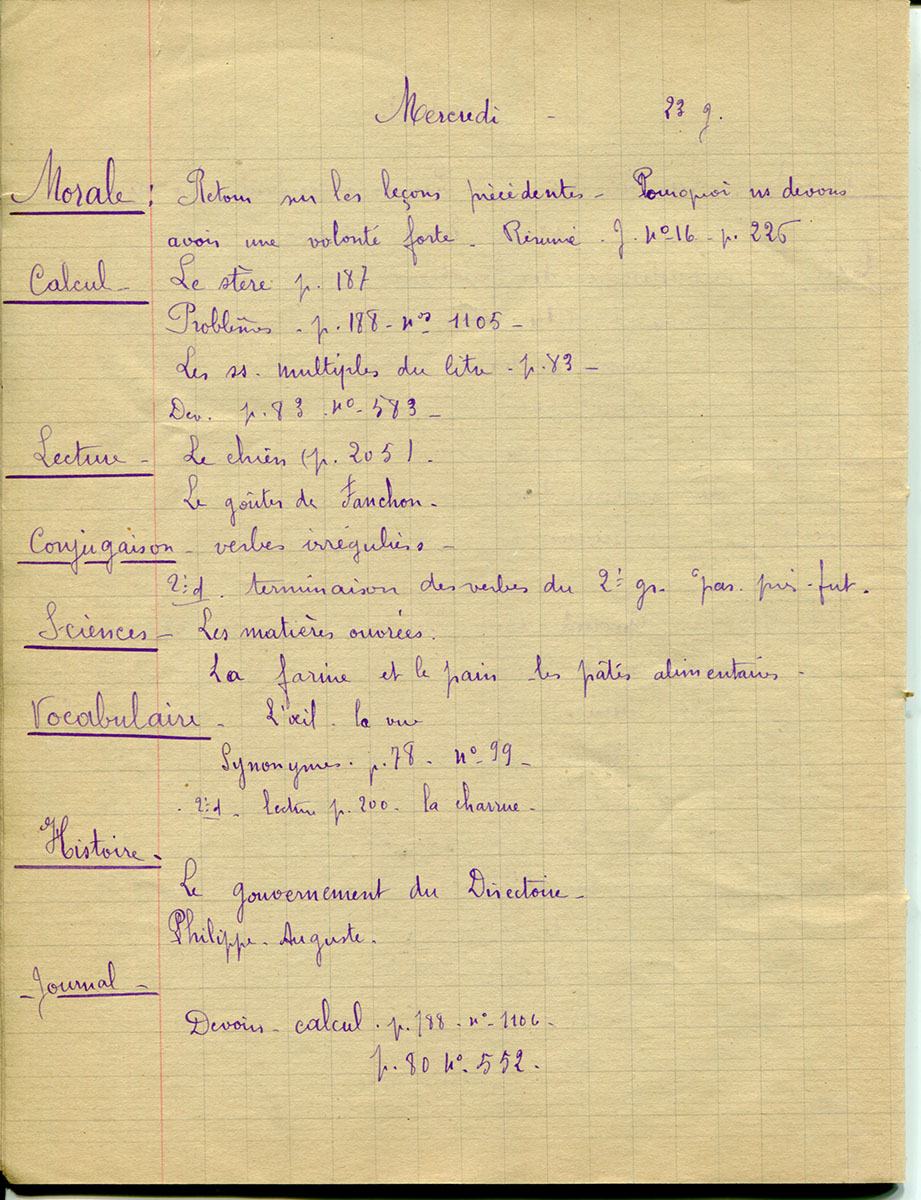 Mercredi - 23 g.
Morale : Retour sur les leçons précédentes - Pourquoi ns devons
avoir une volonté forte - Résumé . J. nº 16 - p. 226
Calcul - Le stère p. 187
Problèmes - p. 188 - nos 1105 -
Les ss. multiples du litre - p. 83 -
Dev. p. 83 . nº - 583 -
Lecture - Le chien (p. 205) .
Le goûter de Fanchon -
Conjugaison - verbes irréguliers -
2e d . terminaison des verbes du 2e gr. pas. prés - fut .
Sciences - Les matières ouvrées .
La farine et le pain - les pâtés alimentaires -
Vocabulaire - L'œil - la vue
Synonymes . p. 78 - nº - 99 -
. 2e d - Lecture p. 200 - la charrue -
Histoire -
Le gouvernement du Directoire -
Philippe - Auguste .
- Journal -
Devoirs - calcul . p. 188 - nº - 1106 -
p. 80 nº . 552 .